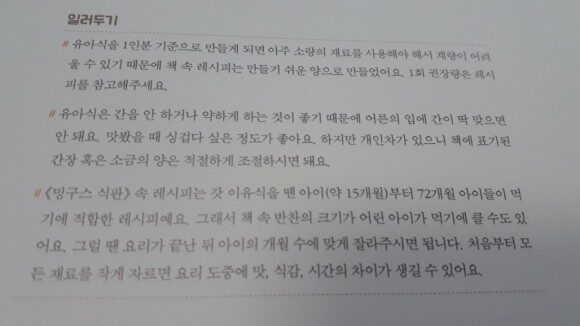 일러두기
# 유아식을 1인분 기준으로 만들게 되면 아주 소량의 재료를 사용해야 해서 계량이 어려
울 수 있기 때문에 책 속 레시피는 만들기 쉬운 양으로 만들었어요. 1회 권장량은 레시
피를 참고해주세요.
# 유아식은 간을 안 하거나 약하게 하는 것이 좋기 때문에 어른의 입에 간이 딱 맞으면
안 돼요. 맛봤을 때 싱겁다 싶은 정도가 좋아요. 하지만 개인차가 있으니 책에 표기된
간장 혹은 소금의 양은 적절하게 조절하시면 돼요.
# 《밍구스 식판》 속 레시피는 갓 이유식을 뗀 아이(약 15개월)부터 72개월 아이들이 먹
기에 적합한 레시피예요. 그래서 책 속 반찬의 크기가 어린 아이가 먹기에 클 수도 있
어요. 그럴 땐 요리가 끝난 뒤 아이의 개월 수에 맞게 잘라주시면 됩니다. 처음부터 모
든 재료를 작게 자르면 요리 도중에 맛, 식감, 시간의 차이가 생길 수 있어요.